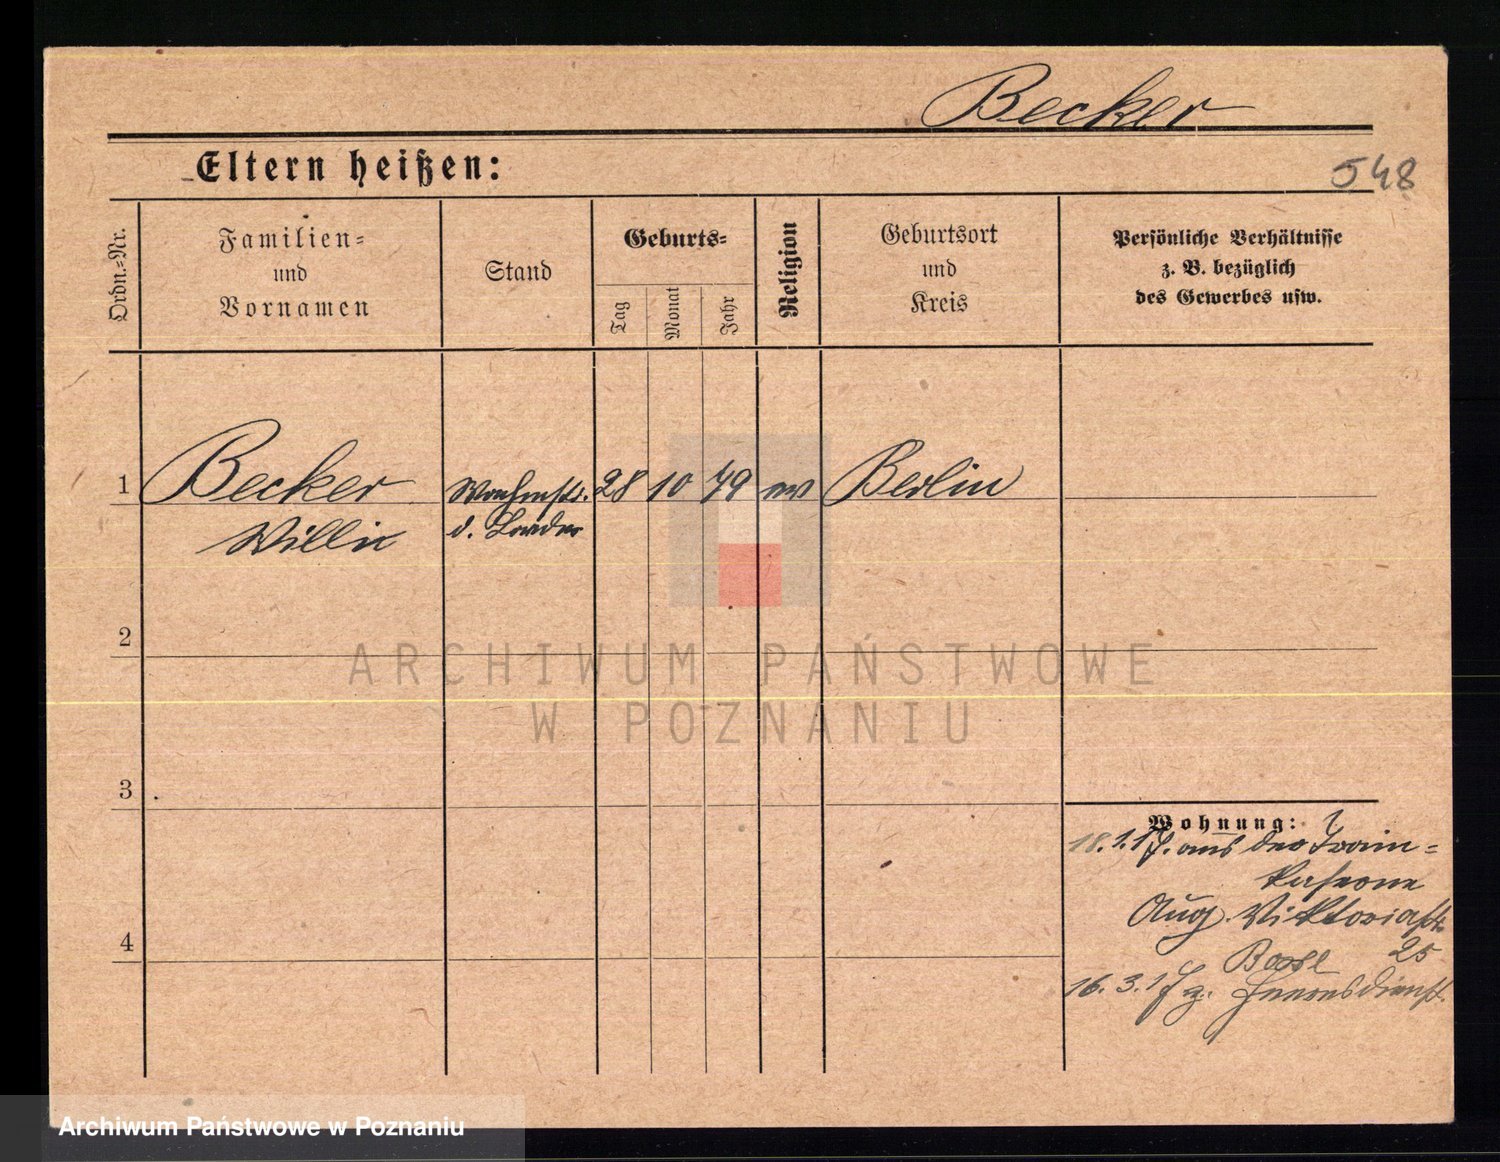 Becker
Eltern heißen:
548
Ordn.=Nr.
Familien=
und
Vornamen
Stand
Geburts=
Tag
Monat
Jahr
Religion
Geburtsort
und
Kreis
Persönliche Verhältnisse
z. B. bezüglich
des Gewerbes usw.
1 Becker 28 10 79 ev Berlin
Willi
d.
2
ARCHIWUM PAŃSTWOWE
W POZNANIU
3
Wohnung:
18.1.17. aus der Train=
kaserne
Aug. Viktoriastr.
25
4
16.3.17 z. Heeresdienst.
Archiwum Państwowe w Poznaniu